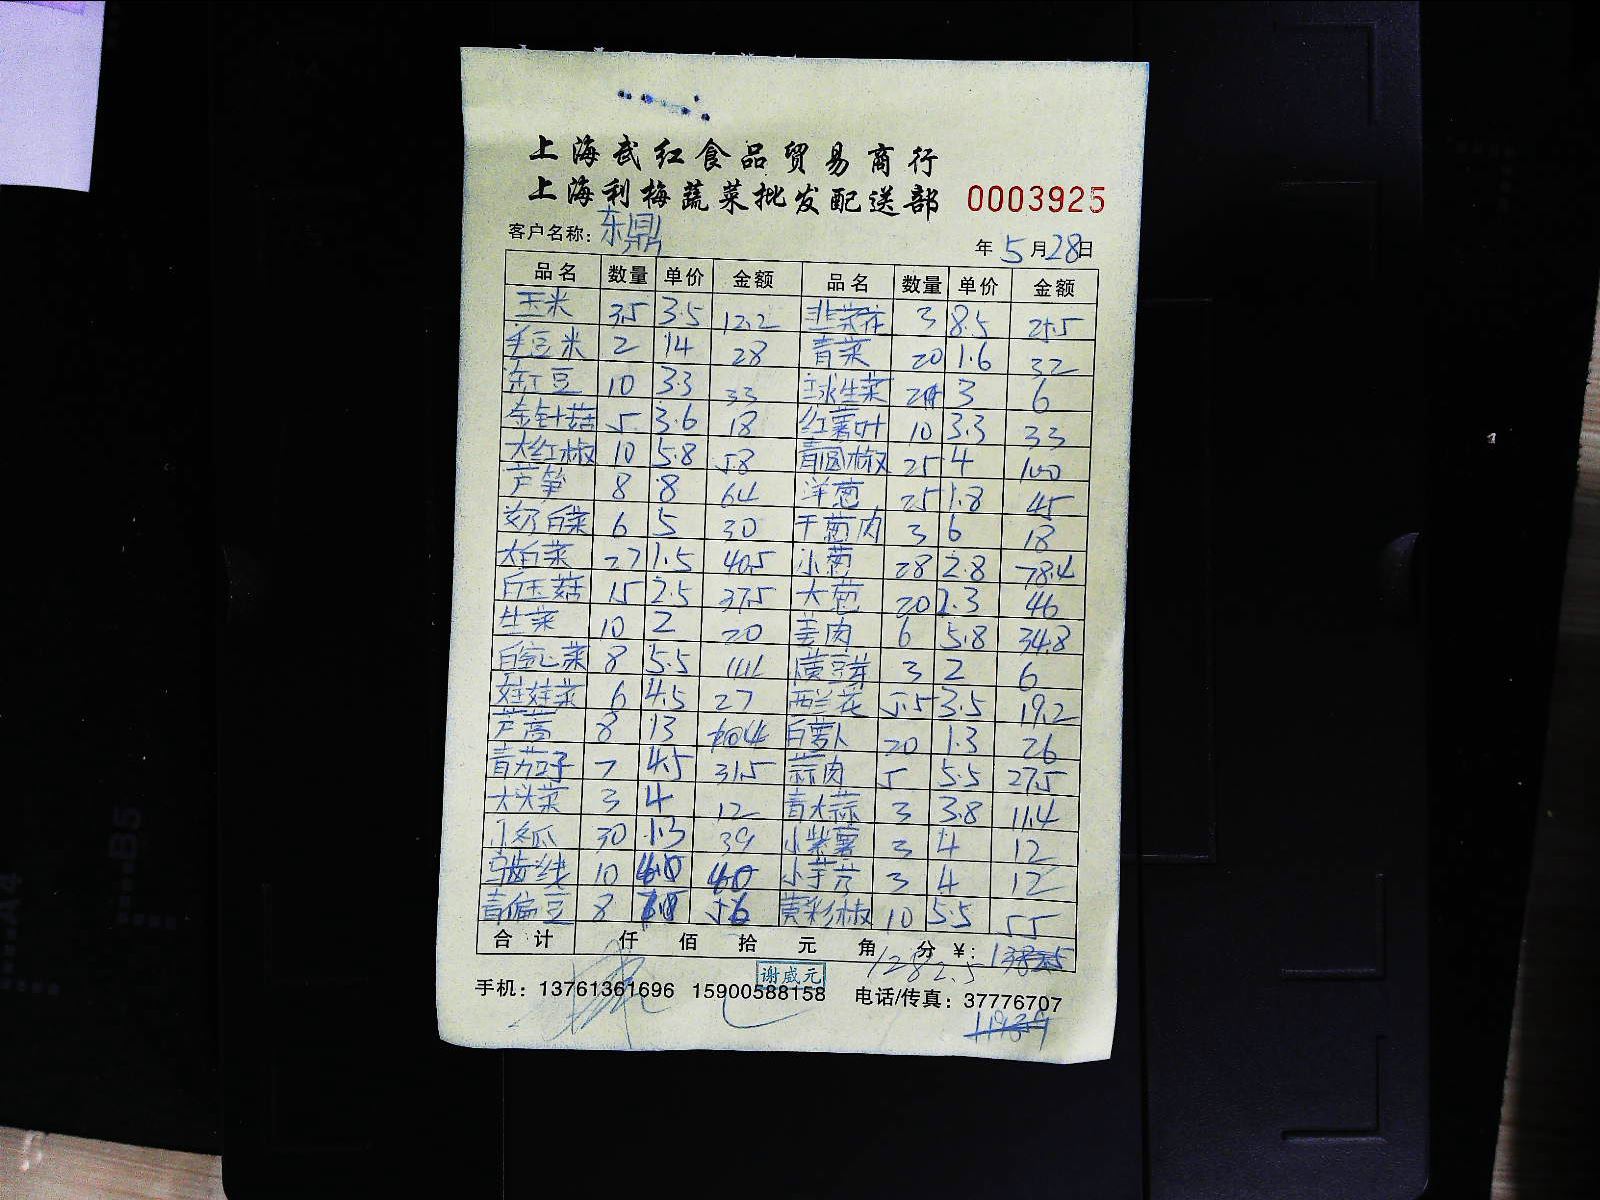 上海武红食品贸易商行
上海利梅蔬菜批发配送部 0003925
客户名称：东鼎 年5月28日
品名 数量 单价 金额 品名 数量 单价 金额
玉米 3.5 3.5 12.2 韭菜花 3 8.5 25.5
毛豆米 2 14 28 青菜 20 1.6 32
豇豆 10 3.3 33 球生菜 2 3 6
金针菇 5 3.6 18 红薯叶 10 3.3 33
大红椒 10 5.8 58 青圆椒 25 4 100
芦笋 8 8 64 洋葱 25 1.8 45
奶白菜 6 5 30 干葱肉 3 6 18
大白菜 27 1.5 40.5 小葱 28 2.8 78.4
白玉菇 15 2.5 37.5 大葱 20 2.3 46
生菜 10 2 20 姜肉 6 5.8 34.8
8 5.5 44 黄豆芽 3 2 6
娃娃菜 6 4.5 27 西兰花 5.5 3.5 19.2
芦蒿 8 13 104 白萝卜 20 1.3 26
青茄子 7 4.5 31.5 蒜肉 5 5.5 27.5
大头菜 3 4 12 青大蒜 3 3.8 11.4
小冬瓜 30 1.3 39 小紫薯 3 4 12
10 40 小芋艿 3 4 12
青扁豆 8 56 黄彩椒 10 5.5 55
合计 仟 佰 拾 元 角 分 ¥：
1282.5
谢威元
手机：13761361696 15900588158 电话/传真：37776707